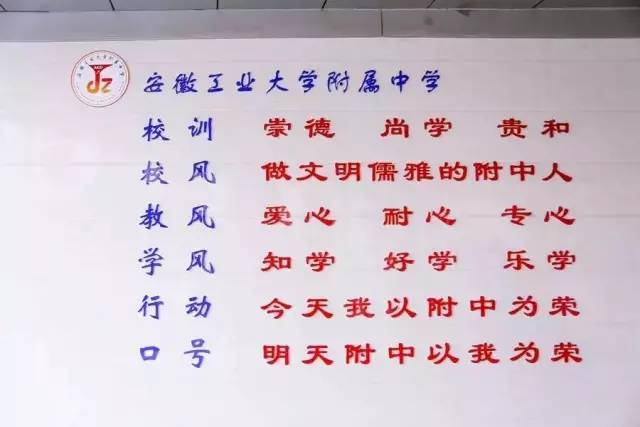 安徽工业大学附属中学
校训 崇德 尚学 贵和
校风 做文明儒雅的附中人
教风 爱心 耐心 专心
学风 知学 好学 乐学
行动 今天我以附中为荣
口号 明天附中以我为荣